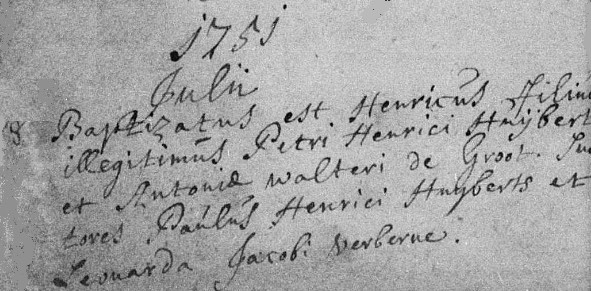 1751
Julii
8 Baptizatus est Henricūs Filiu
illegitimūs Petri Henrici Huijbert
et Antoniæ walteri de Groot. Sus
tores Paūlūs Henrici Huijberts et
Leonarda Jacobi verberne.